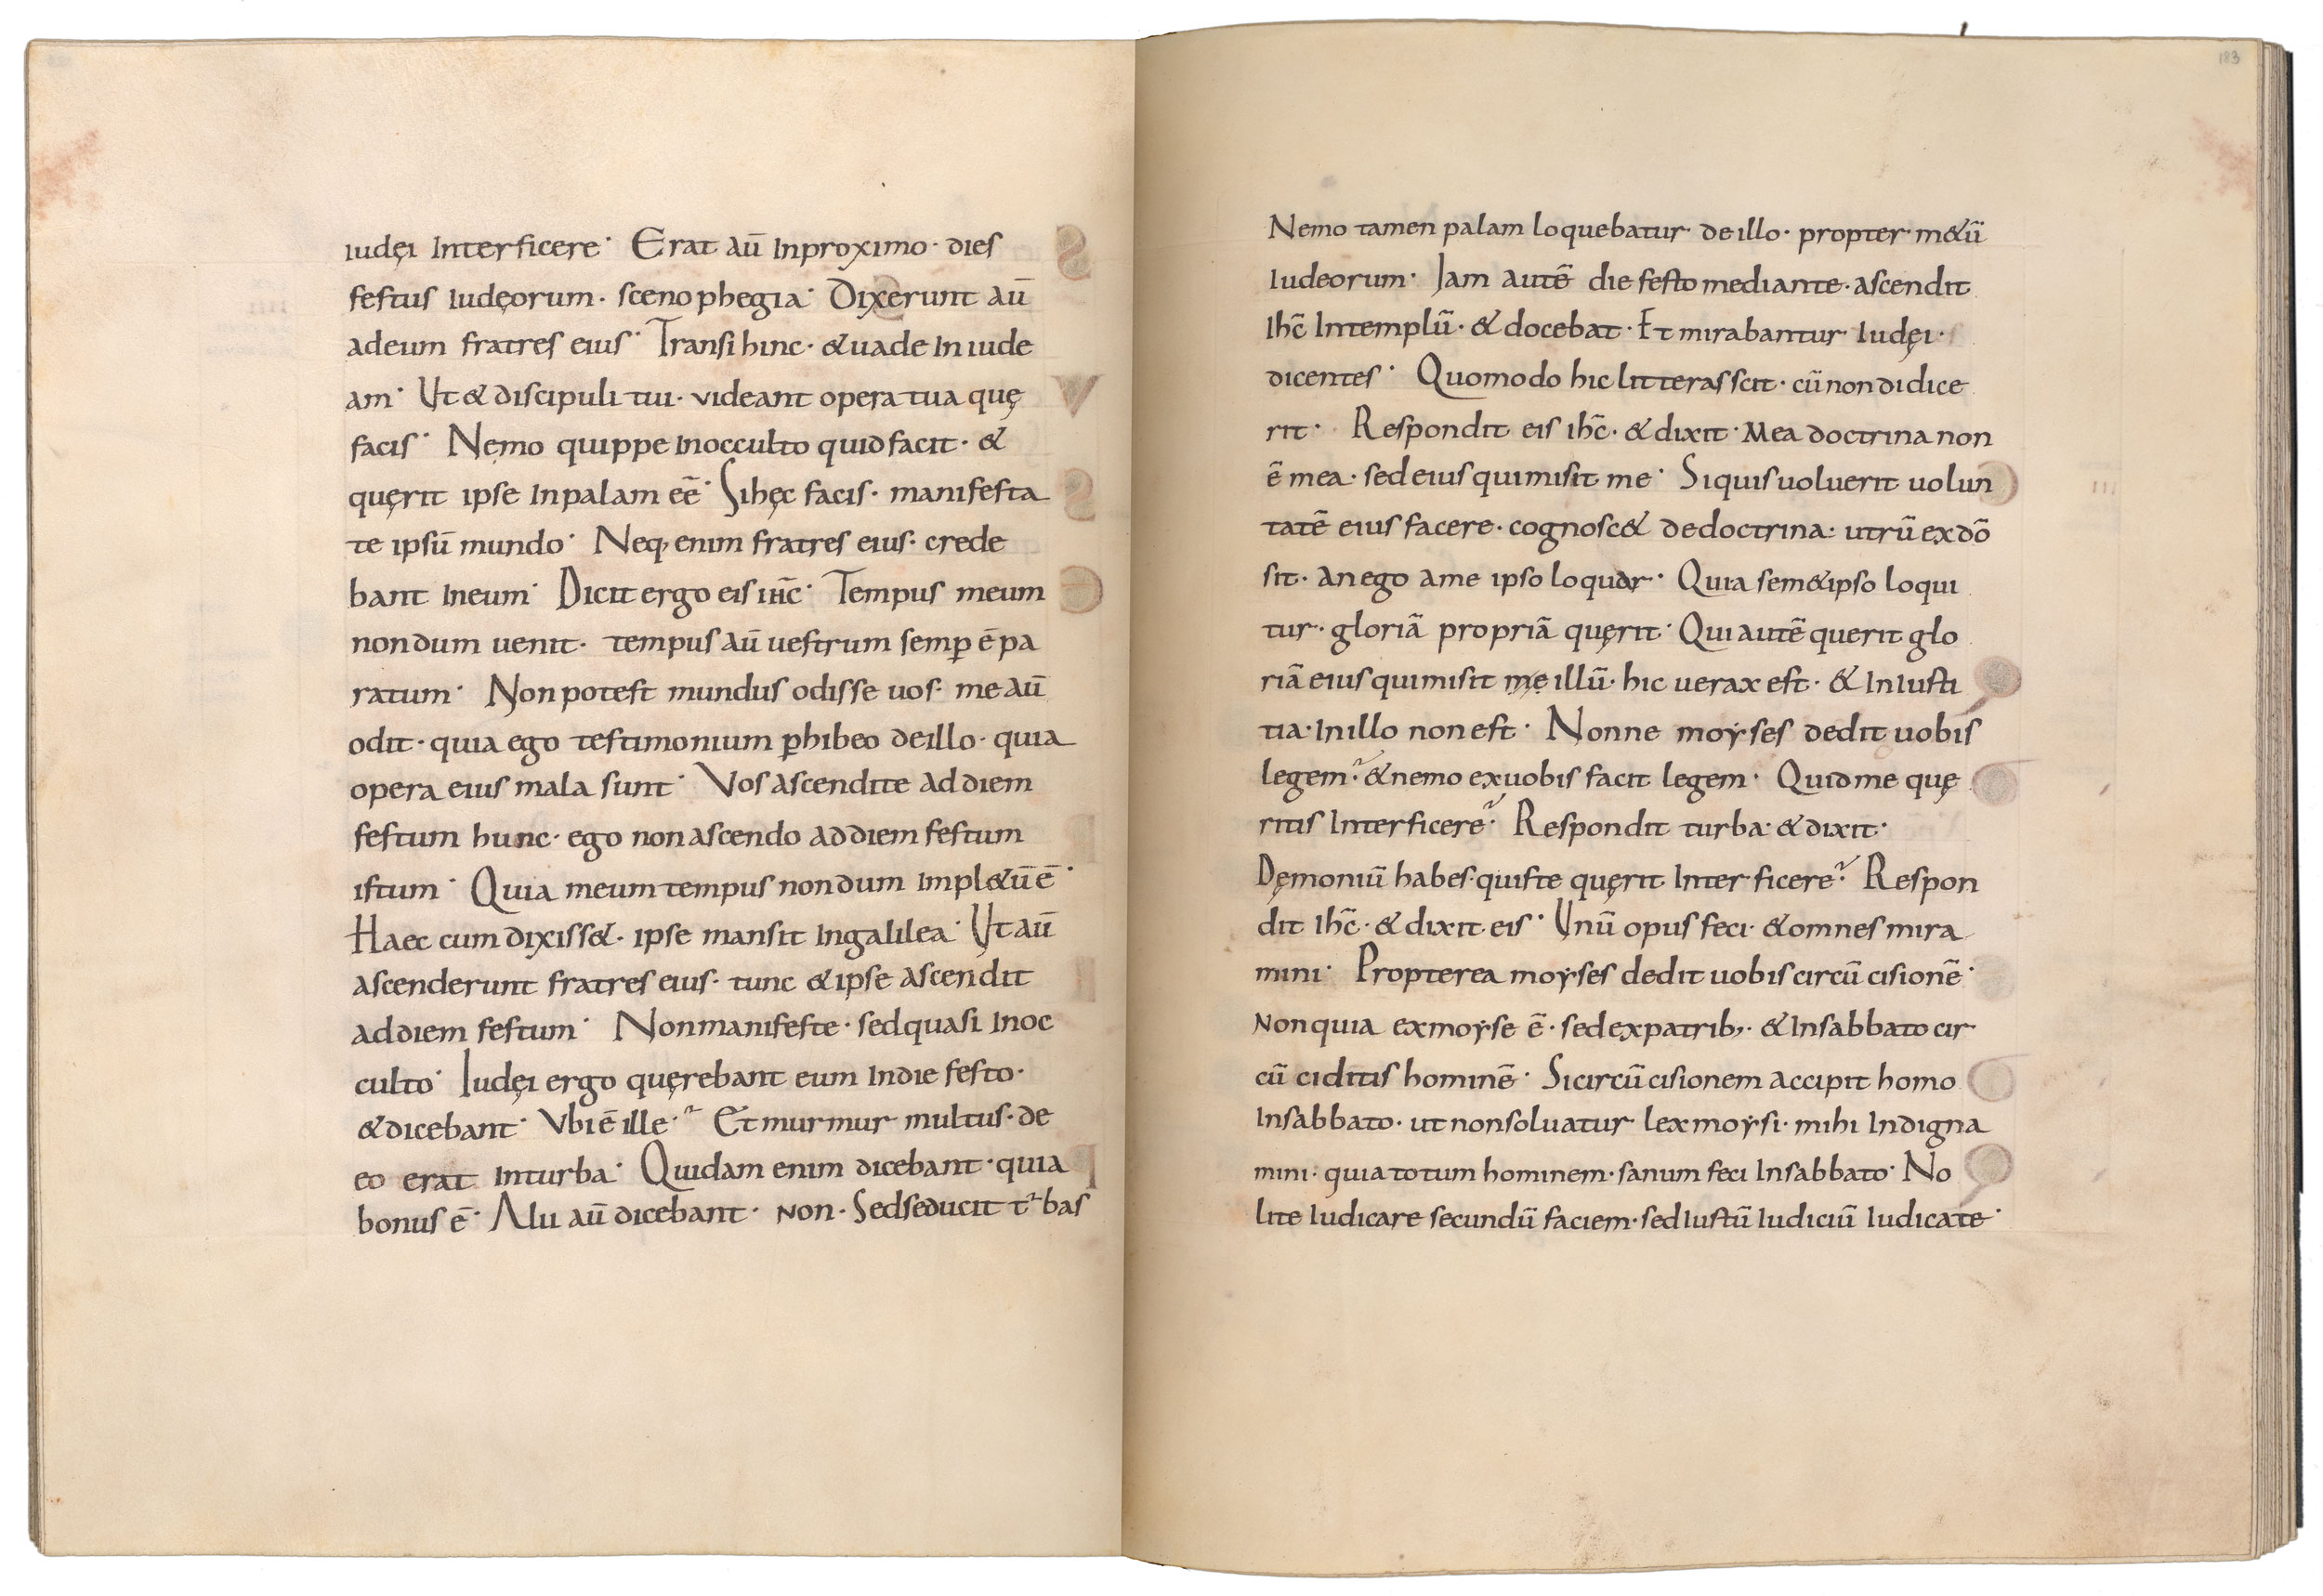 iudęi interficere· Erat aū inproximo· dies
festus iudęorum· scenophegia· Dixerunt aū
adeum fratres eius· Transi hinc· &uade in iude
am· Ut & discipuli tui· videant opera tua quę
facis· Nemo quippe inocculto quid facit· &
quęrit ipse inpalam eē· Si hęc facis· manifesta
te ipsū mundo· Neq, enim fratres eius· crede
bant ineum· Dicit ergo eis ihc̄· Tempus meum
nondum uenit· tempus aū uestrum semꝑ ē pa
ratum· Non potest mundus odisse uos· me aū
odit· quia ego testimonium ꝑhibeo deillo· quia
opera eius mala sunt· Vos ascendite ad diem
festum hunc· ego non ascendo ad diem festum
istum· Quia meum tempus nondum impl&ū ē·
Haec cum dixiss&· ipse mansit ingalilea· Ut aū
ascenderunt fratres eius· tunc & ipse ascendit
ad diem festum· Non manifeste· sed quasi inoc
culto· Iudęi ergo quęrebant eum indie festo·
& dicebant· Vbi ē ille· Et murmur multus· de
eo erat inturba· Quidam enim dicebant· quia
bonus ē· Alii aū dicebant· non· Sed seducit tᷣbas
183
Nemo tamen palam loquebatur deillo· propter m&ū
iudeorum· Jam autē die festo mediante· ascendit
ihc̄ intemplū· & docebat· Et mirabantur iudęi·
dicentes· Quomodo hic litteras scit· cū non didice
rit· Respondit eis ihc̄· & dixit· Mea doctrina non
ē mea· sed eius qui misit me· Si quis uoluerit uolun
tatē eius facere· cognosc& de doctrina: utrū ex dō
sit· an ego ame ipso loquar· Quia sem&ipso loqui
tur· gloriā propriā quęrit· Qui autē querit glo
riā eius qui misit me illū· hic uerax est· & iniusti
tia· inillo non est· Nonne moẏses dedit uobis
legem· & nemo ex uobis facit legem· Quid me quę
ritis interficere· Respondit turba & dixit·
Dęmoniū habes· quis te quęrit interficere· Respon
dit ihc̄· & dixit eis· Unū opus feci· & omnes mira
mini· Propterea moẏses dedit uobis circū cisionē·
Non quia ex moẏse ē· sed ex patrib,· & insabbato cir
cū ciditis hominē· Si circū cisionem accipit homo
insabbato· ut non soluatur lex moẏsi· mihi indigna
mini· quia totum hominem· sanum feci insabbato· No
lite iudicare secundū faciem· sed iustū iudiciū iudicate·